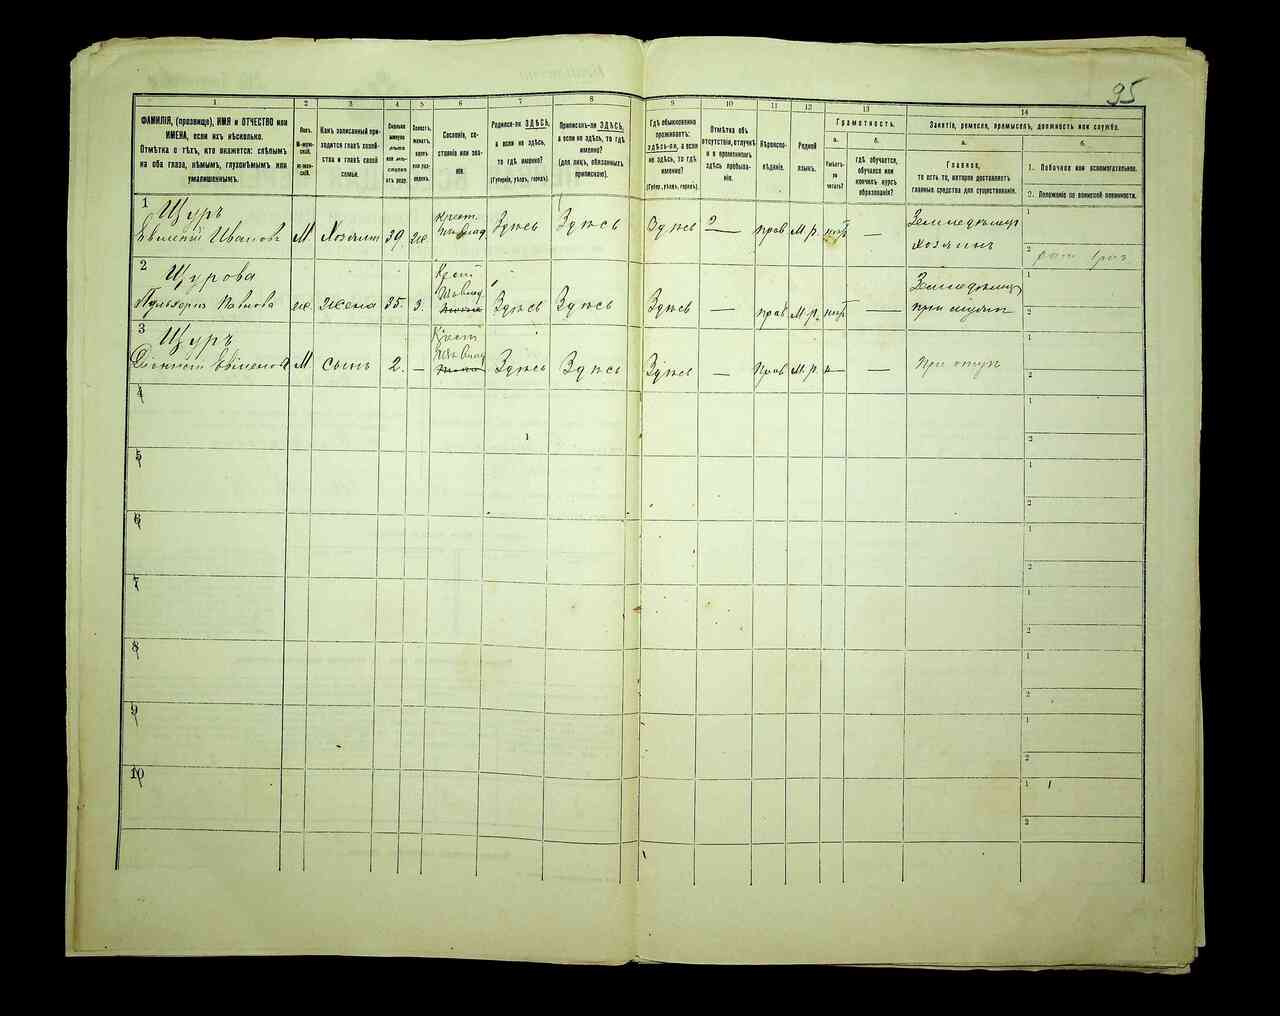 95
1 2 3 4 5 6 7 8 9 10 11 12 13 14
ФАМИЛІЯ, (прозвище), ИМЯ и ОТЧЕСТВО или
ИМЕНА, если ихъ нѣсколько.
Отмѣтка о тѣхъ, кто окажется: слѣпымъ
на оба глаза, нѣмымъ, глухонѣмымъ или
умалишеннымъ.
Полъ.
М-мужской.
Ж-женскій.
Какъ записанный приходится
главѣ хозяйства
и главѣ своей
семьи.
Сколько
минуло
лѣтъ
или мѣсяцевъ
отъ роду.
Холостъ,
женатъ,
вдовъ
или разведенъ.
Сословіе, состояніе
или званіе.
Родился-ли ЗДѢСЬ,
а если не здѣсь,
то гдѣ именно?
(Губернія, уѣздъ, городъ).
Приписанъ-ли ЗДѢСЬ,
а если не здѣсь, то гдѣ
именно?
(для лицъ, обязанныхъ
припискою).
Гдѣ обыкновенно
проживаетъ:
ЗДѢСЬ-ли, а если
не здѣсь, то гдѣ
именно?
(Губер., уѣздъ, городъ).
Отмѣтка объ
отсутствіи, отлучкѣ
и о временномъ
здѣсь пребываніи.
Вѣроисповѣданіе.
Родной
языкъ.
Грамотность.
а.
Умѣетъ-ли
читать?
б.
гдѣ обучается,
обучался или
кончилъ курсъ
образованія?
Занятіе, ремесло, промыселъ, должность или служба.
а.
Главное,
то есть то, которое доставляетъ
главныя средства для существованія.
б.
1. Побочное или вспомогательное.
2. Положеніе по воинской повинности.
1 Щуръ
Ивановъ М Хозяинъ 39. же Крест. Здѣсь Здѣсь Здѣсь — прав М.р. нѣтъ — хозяинъ
1
2
2 Щурова
Павлова же. Жена 35. З. Здѣсь Здѣсь Здѣсь — прав М.р. нѣтъ при мужѣ
1
2
3 Щуръ
М сынъ 2. — Здѣсь Здѣсь Здѣсь — Прав М.р. — — При отцѣ
1
2
4
1
2
5
1
2
6
1
2
7
1
2
8
1
2
9
1
2
10
1
2